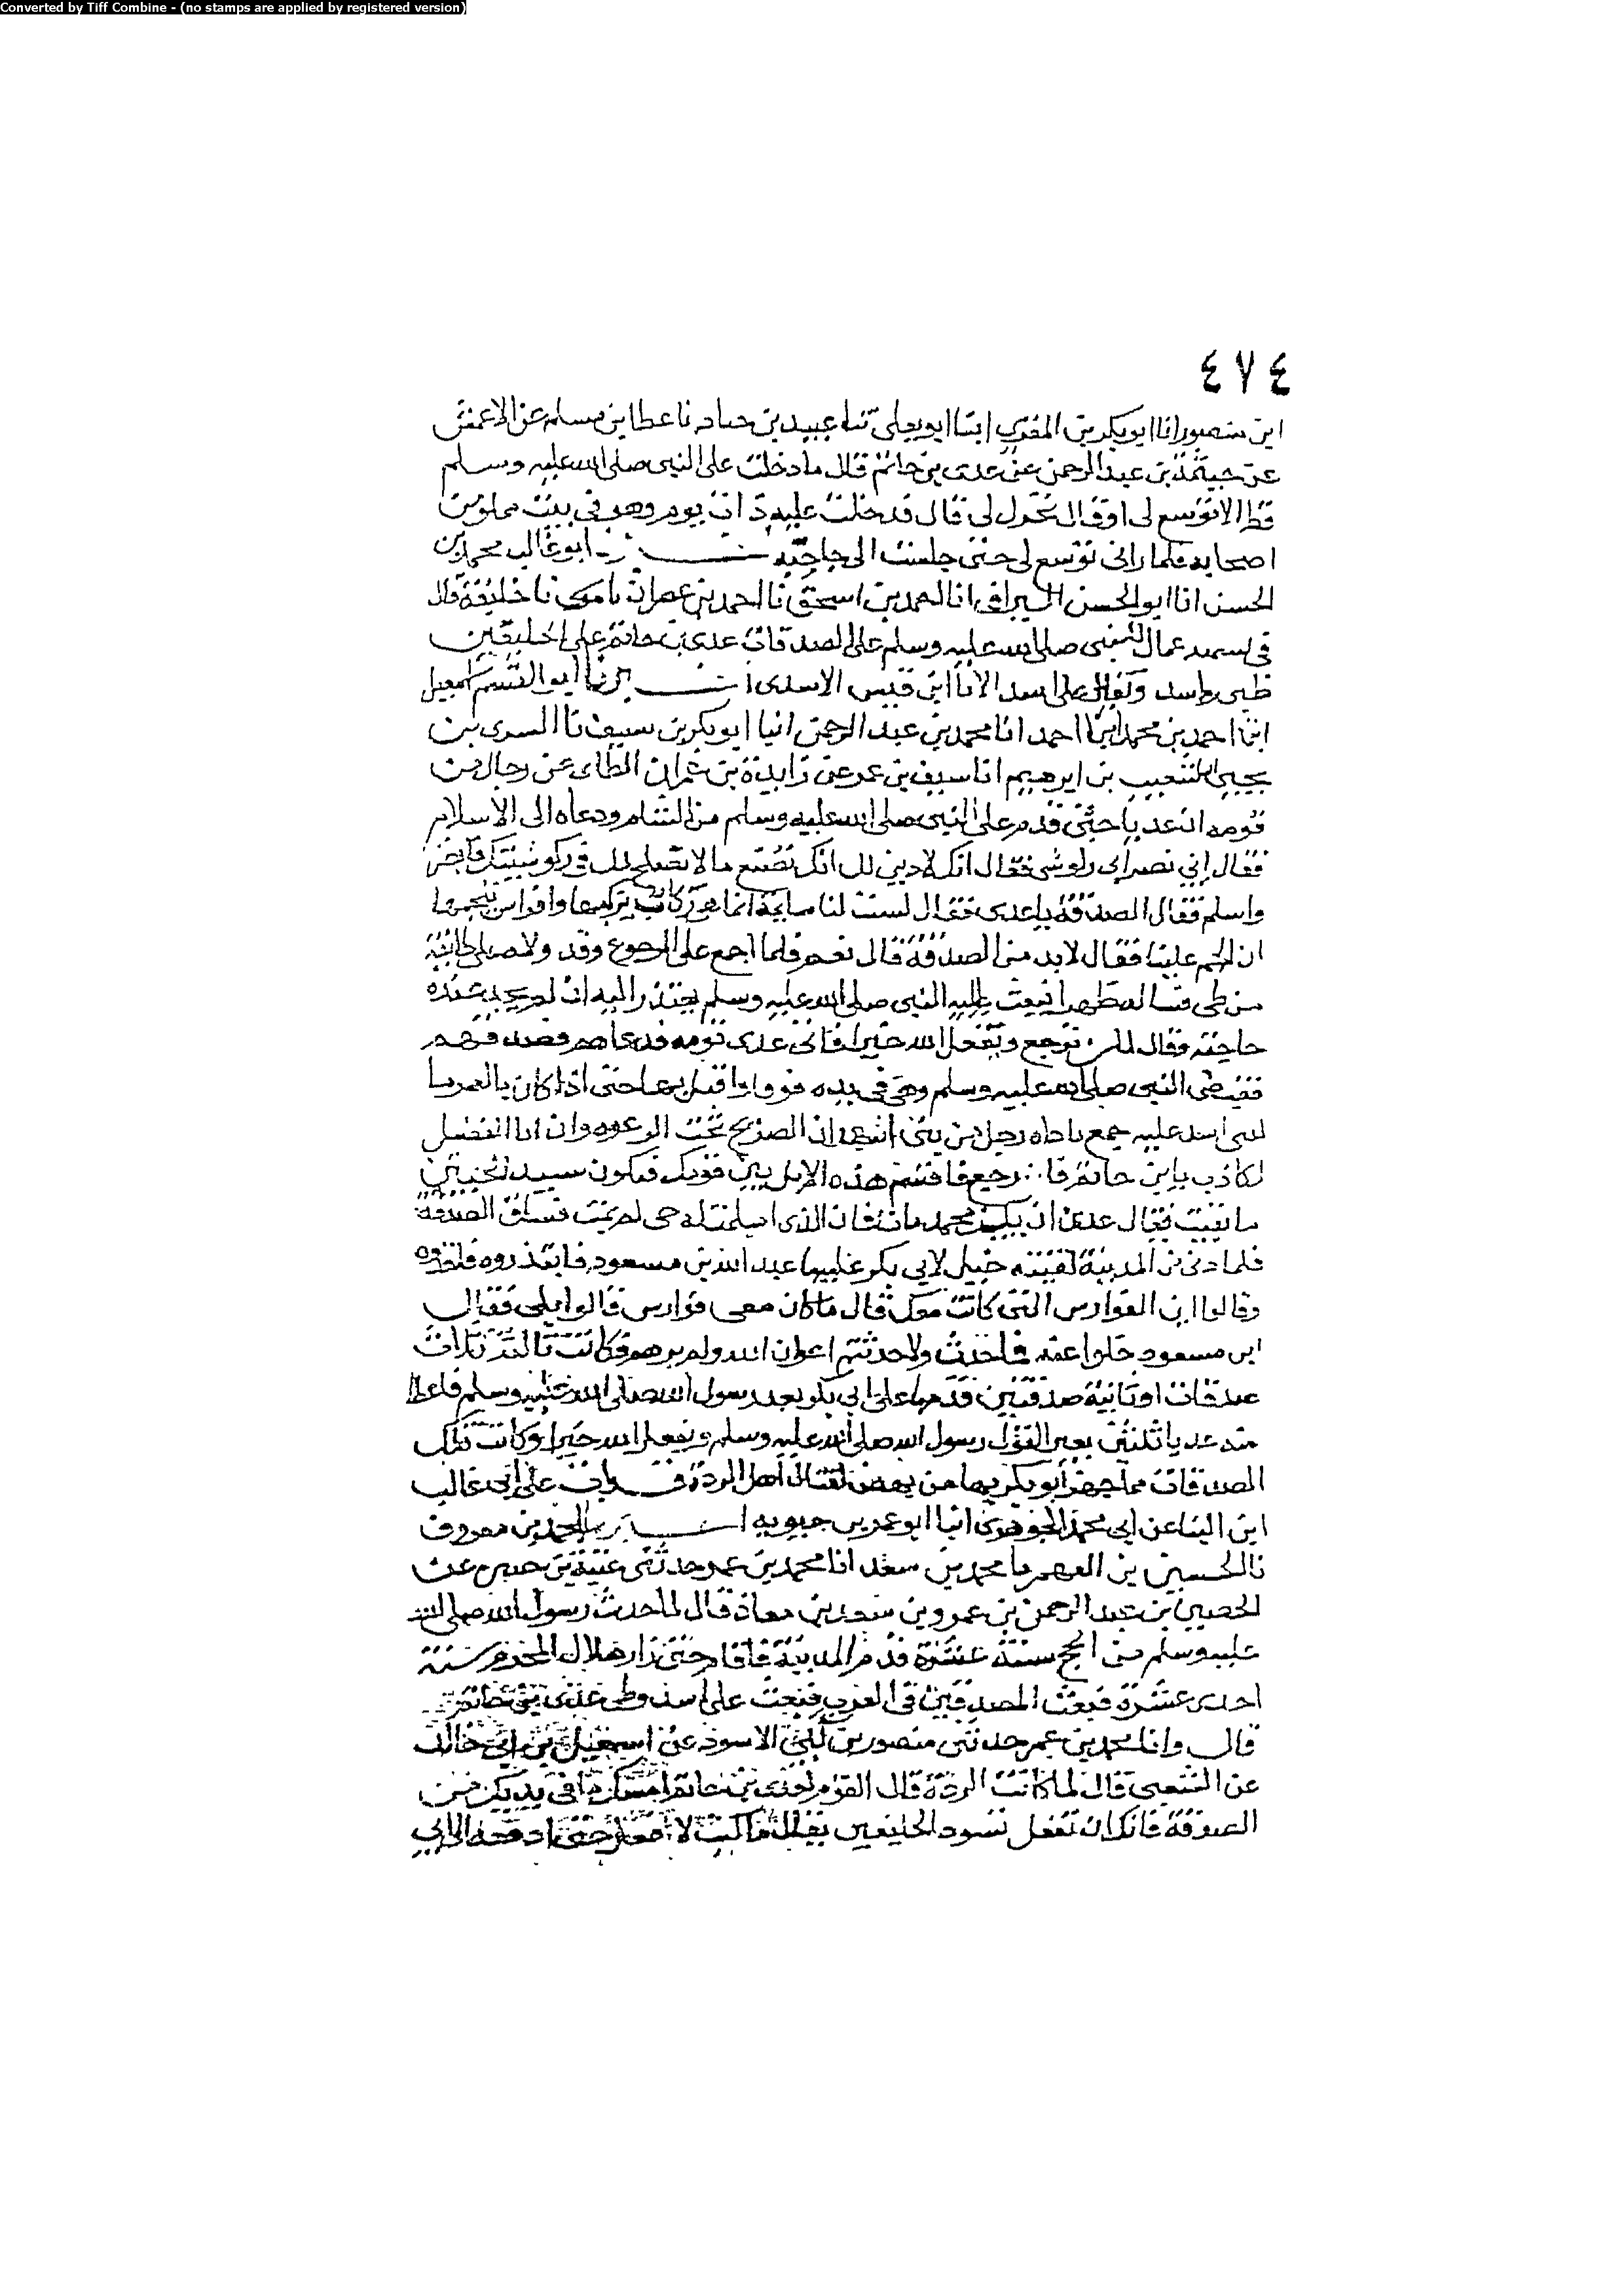 Converted by Tiff Combine - (no stamps are applied by registered version)
٤٧٤
ابن منصور انا ابو بكر بن المقرى ابنا ابو يعلى نا عبيد بن جناد نا عطا بن مسلم عن الاعمش
عن خيثمة بن عبد الرحمن عن عدى بن حاتم قال ما دخلت على النبى صلى الله عليه وسلم
قط الا توسع لى او قال تحول لى قال فدخلت عليه ذات يوم وهو فى بيت مملو من
اصحابه فلما رانى توسع لى حتى جلست الى جانبه ابو غالب محمد بن
الحسن انا ابو الحسن السيرافى انا احمد بن اسحق نا احمد بن عمران نا موسى نا خليفة قال
فى تسمية عمال النبى صلى الله عليه وسلم على الصدقات عدى بن حاتم على الحليفين
طيى واسد ويقال على اسد الا انا ابن قيس الاسدى ابو القسم اسمعيل
ابن احمد بن محمد ابنا احمد انا محمد بن عبد الرحمن انبا ابو بكر بن سيف نا السرى بن
يحيى نا شعيب بن ابرهيم انا سيف بن عمر عن زايدة بن عمران الطائى عن رجال من
قومه ان عديا حتى قدم على النبى صلى الله عليه وسلم من الشام ودعاه الى الاسلام
فقال انى نصرانى ركوسى فقال انك لا دين لك انك تصنع ما لا يصلح لك فى ركوسيتك
واسلم فقال الصدقة يا عدى فقال ليست لنا سايمة انما هو ركاب نركبها وافراس نلجمها
ان الجم علينا فقال لا بد من الصدقة قال نعم فلما اجمع على الرجوع وقد
من طى فسا له ظهرا فبعث اليه النبى صلى الله عليه وسلم يعتذر اليه ان لم يجد عنده
حاجته وقال ترجع ويفعل الله خيرا فاتى عدى قومه فدعاهم
فقبض النبى صلى الله عليه وسلم وهى فى يده اقبل بها حتى اذا كان
لبنى اسد عليه جمع ناداه رجل من ان الصريح تحت الرغوه وان ابا الفضيل
لكاذب يا ابن حاتم ارجع فاقسم هذه الابل بين قومك فتكون سيد
ما بقيت فقال عدى ان يكن محمد مات فان الذى اسلمت له حى لم يمت فساق الصدقة
فلما دنى من المدينة لقيته خيل لابى بكر عليها عبد الله بن مسعود فابتدروه
وقالوا اين الفوارس التى كانت معك قال ما كان معى فوارس قالوا بلى فقال
ابن مسعود خلوا عنه ولا كذبتم اعوان الله ولم يرهم فكانت ثالثة ثلاث
صدقات او ثانية صدقتين قدم بها على ابى بكر بعد رسول الله صلى الله عليه وسلم فاعطا
منه عديا ثلثين بعير القول رسول الله صلى الله عليه وسلم ويفعل الله خيرا وكانت تلك
الصدقات مما جهز ابو بكر بها من يهض لقتال اهل الردة قرات على ابى غالب
ابن البنا عن ابى محمد الجوهرى انبا ابو عمر بن حيويه احمد بن معروف
نا الحسين بن الفهم نا محمد بن سعد انا محمد بن عمر حدثنى عتبة بن جبيره عن
الحصين بن عبد الرحمن بن عمرو بن سعد بن معاذ قال لما صدر رسول الله صلى الله
عليه وسلم من الحج سنة عشرة قدم المدينة فاقام حتى راى هلال المحرم سنة
احدى عشرة فبعث المصدقين فى العرب فبعث على اسد وطى عدى بن حاتم
قال وانا محمد بن عمر حدثنى منصور بن ابى الاسود عن اسمعيل بن ابى خالد
عن الشعبى قال لما كانت الردة قال القوم لعدى بن حاتم امسك ما فى يديك من
الصدقة فانك ان تفعل تسود الحليفين فقال ما كنت لافعل حتى ادفعه الى ابى